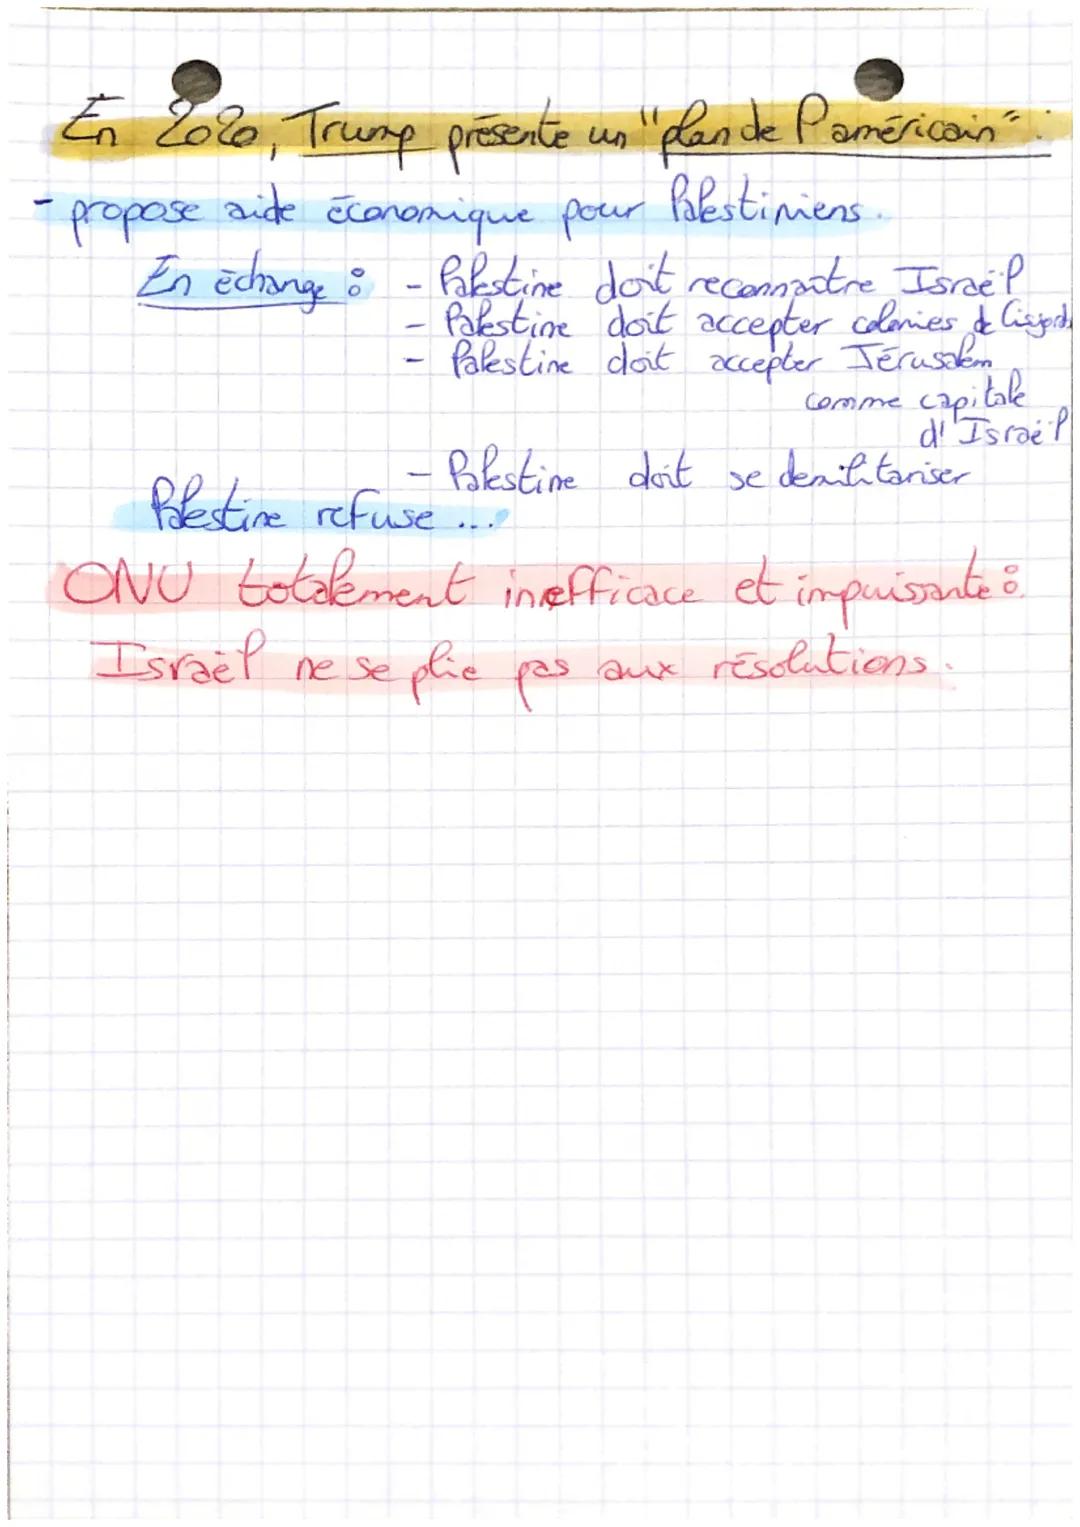 En 2020, Trump présente un "plan de P américain" :
- propose aide économique pour Palestiniens.
En échange : - Palestine doit reconnaître Israël
- Palestine doit accepter colonies de Cisjord
- Palestine doit accepter Jérusalem
comme capitale
d'Israël
- Palestine doit se demilitariser
Palestine refuse ...
ONU totalement inefficace et impuissante :
Israël ne se plie pas aux résolutions.